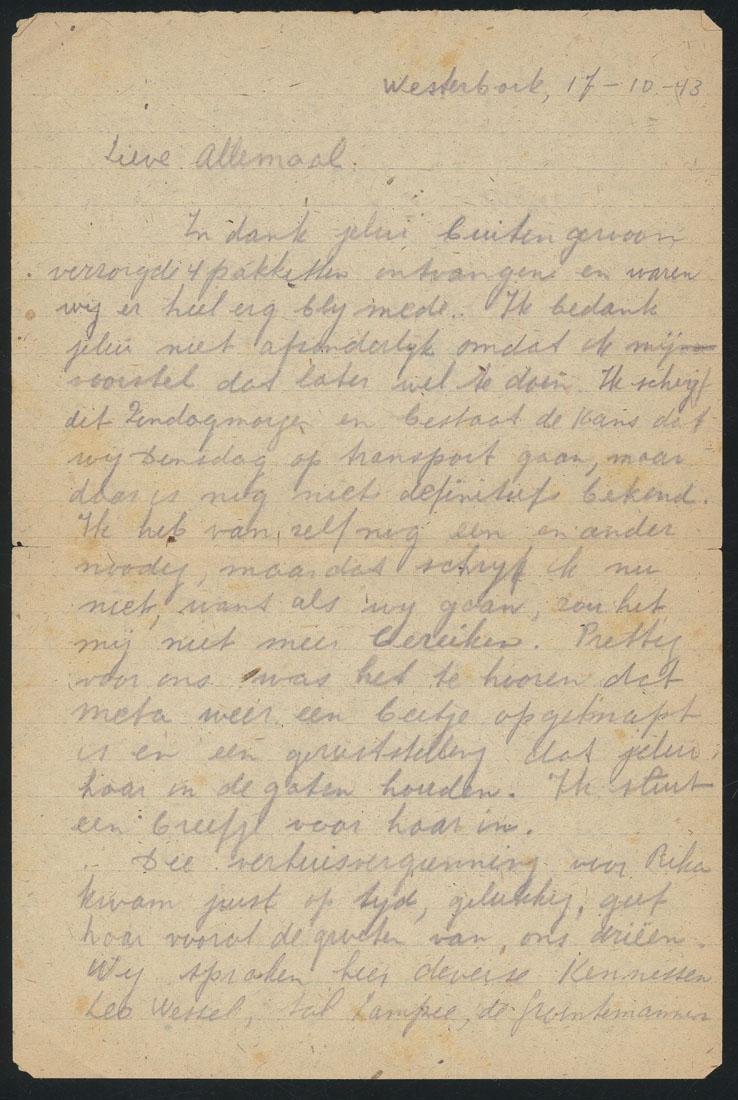 Westerbork, 17-10-43
Lieve Allemaal.
In dank jelui buitengewoon
verzorgde 4 pakketten ontvangen en waren
wij er heel erg blij mede. Ik bedank
jelui niet afzonderlijk omdat ik mij
voorstel dat later wel te doen. Ik schrijf
dit Zondagmorgen en bestaat de Kans dat
wij Dinsdag op transport gaan, maar
daar is nog niet definitiefs bekend.
Ik heb van zelf nog een en ander
noodig, maar dat schrijf ik nu
niet, want als wij gaan, zou het
mij niet meer bereiken. Prettig
voor ons was het te hooren dat
Meta weer een beetje opgeknapt
is en een geruststelling dat jelui
haar in de gaten houden. Ik sluit
een briefje voor haar in.
Die verhuisvergunning voor Rika
kwam juist op tijd, gelukkig, geef
haar vooral de groeten van ons drieën.
Wij spraken hier deverse Kennissen
Leo Wessel, de